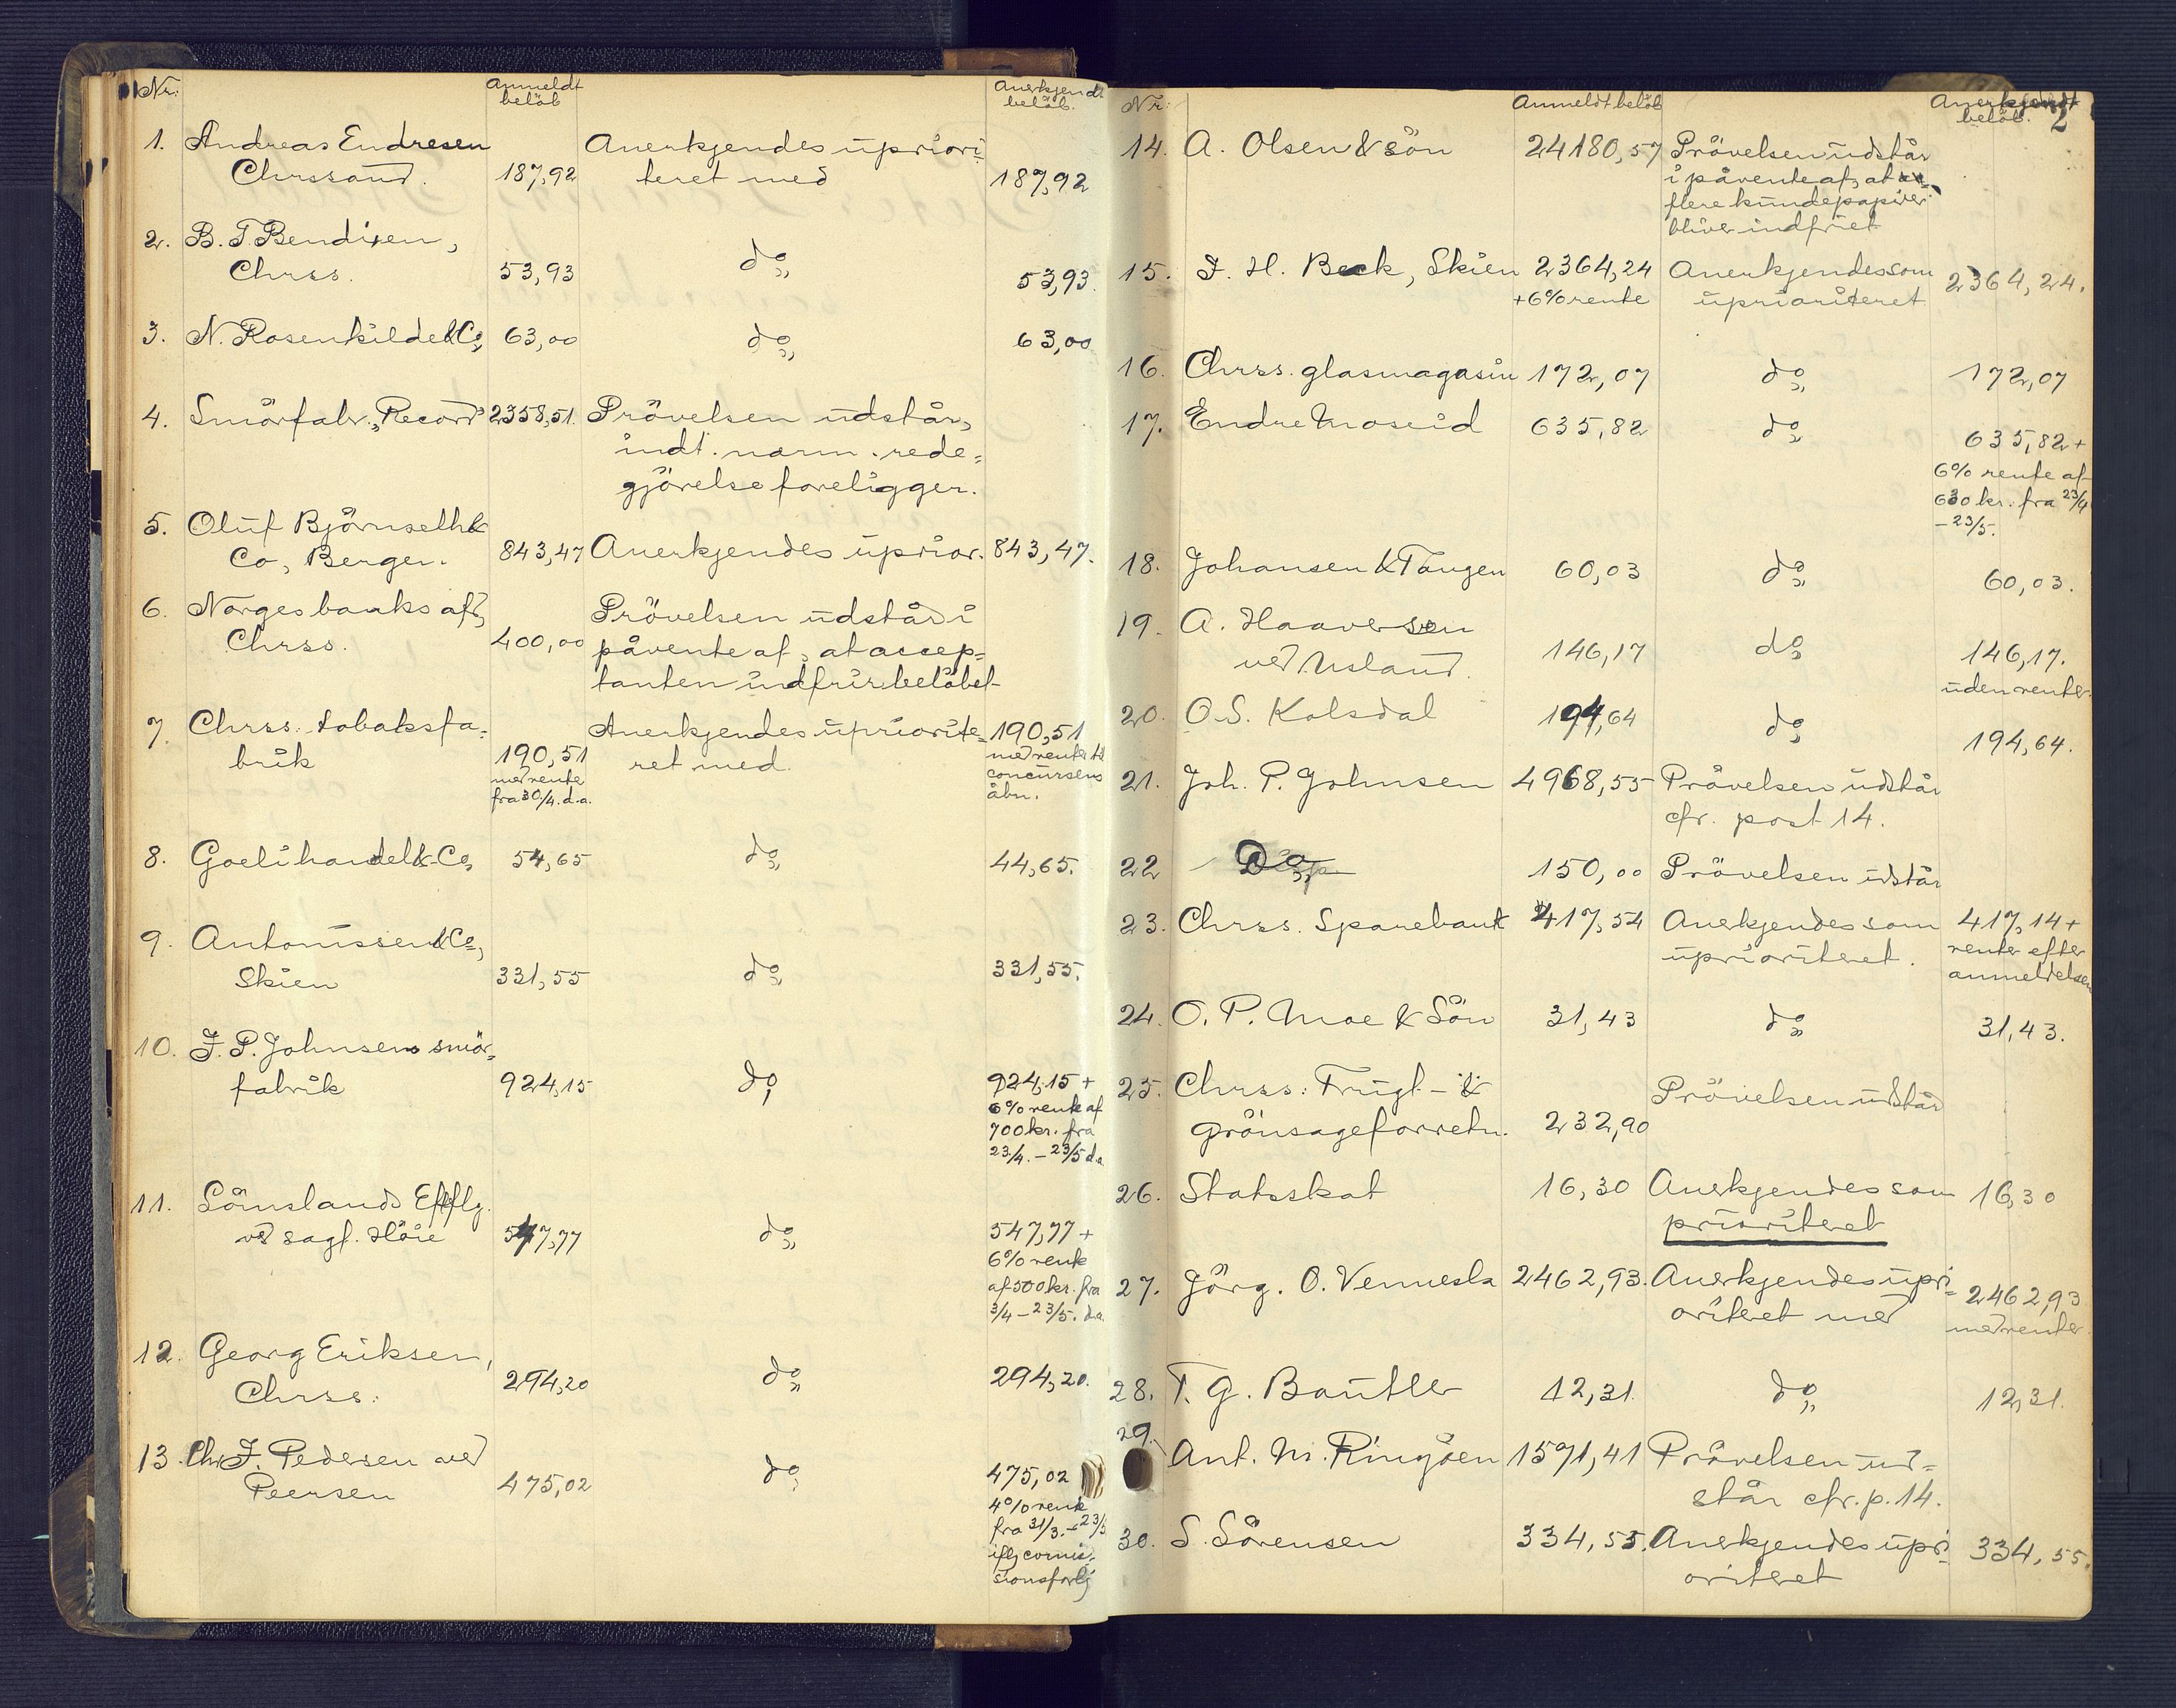 Nr: Anmeldt Anerkjendt
beløb beløb.
1. Andreas Endresen Anerkjendes upriori-
Chrssand. 187,92 teret med 187,92
2. B. T. Bendixen,
Chrss. 53,93 do 53,93.
3. N. Rosenkilde & Co, 63,00 do 63,00
4. Smörfabr. „Record" 2358,51. Prövelsen udstår,
indt. narm. rede=
gjörelse foreligger.
5. Oluf Björnseth &
Co, Bergen. 843,47 Anerkjendes uprior. 843,47.
6. Norges banks afd, Prövelsen udstår i
Chrss. 400,00 påvente af, at accep=
tanten indfrir belöbet
7. Chrss. tobaksfa= Anerkjendes upriorite= 190,51
brik 190,51 ret med. med renter til
med rente concursens
fra 30/4. d.a. åbn.
8. Goelihandel & Co, 54,65 do 44,65.
9. Antonissen & Co,
Skien 331,55 do 331,55.
10. F. P. Johnsens smör=
fabrik 924,15 do 924,15 +
6% rente af
700 kr. fra
23/4. – 23/5 d.a
11. Lömslands Efflg.
vd sagf. Höie 547,77 do 547,77 +
6% rente
af 500 kr. fra
3/4 – 23/5. d.a.
12. Georg Eriksen,
Chrss: 294,20 do 294,20.
13. Chr. F. Pedersen ved
Peersen 475,02 do 475,02
4% rente
fra 31/3. – 23/5
iflg comis=
sionsforlig
Nr: Anmeldt beløb Anerkjendt
beløb. 2
14. A. Olsen & sön 24180,57 Prövelsen udstår
i påvente af, at
flere kundepapirer
bliver indfriet
15. F. H. Beck, Skien 2364,24 Anerkjendes som 2364,24.
+6% rente uprioriteret
16. Chrss. glasmagasin 172,07 do 172,07
17. Endre Moseid 635,82 do 635,82 +
6% rente af
630 kr. fra 23/4
– 23/5.
18. Johansen & Tangen 60,03 do 60,03.
19. A. Haaversen
ved Usland. 146,17 do 146,17.
uden renter.
20. O. S. Kolsdal 194,64 do 194,64.
21. Joh. P. Johnsen 4968,55 Prövelsen udstår
cfr. post 14.
22 Do 150,00 Prövelsen udstår
23. Chrss. Sparebank 417,54 Anerkjendes som 417,14 +
uprioriteret. renter efter
anmeldelsen
24. O. P. Moe & Sön 31,43 do 31,43.
25. Chrss: Frugt- & Prövelsen udstår
grönsageforretn. 232,90
26. Statsskat 16,30 Anerkjendes som 16,30
prioriteret
27. Jörg. O. Vennesla 2462,93. Anerkjendes upri= 2462,93
oriteret med med renter
28. T. G. Bautler 12,31. do 12,31.
29. Ant. M. Ringöen 1591,41 Prövelsen ud=
står cfr. p. 14.
30. S. Sörensen 334,55. Anerkjendes upri= 334,55.
oriteret